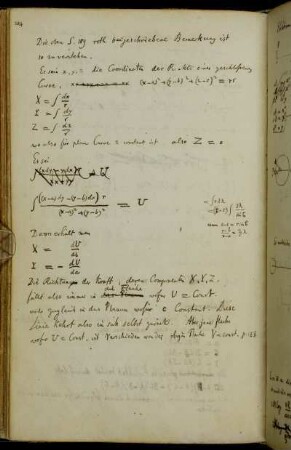 Die den S. 109 roth beigeschriebene Bemerkung ist
so zu verstehen.
Es sein x, y, z die Coordinaten des Punkts einer geschlossenen
Curve. (x-a)² + (y-b)² + (z-c)² = rr
X = ∫ dx/r
Y = ∫ dy/r
Z = ∫ dz/r
wo also für plane Curve z constant ist also Z = 0
Es sei
∫ ((x-a)dy - (y-b)dx) r / ((x-a)² + (y-b)²) = U
Dann erhält man
X = dU/db
Y = - dU/da
Die Richtung der Kraft, deren Componenten X, Y, Z.
fällt also immer in die Fläche wofür U = Const
und zugleich in den Planum wofür c Constant. Diese
Linie kehrt also in sich selbst zurück. Aber jene Fläche
wofür U = Const. ist verschieden von der obigen Fläche V = const. p. 123